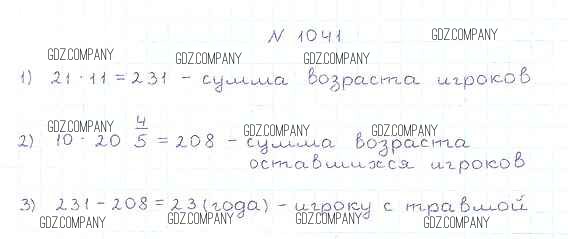 N 1041
GDZ.COMPANY
GDZ.COMPANY GDZ.COMPANY GDZ.COMPANY
1) 21 · 11 = 231 - сумма возраста игроков
GDZ.COMPANY GDZ.COMPANY GDZ.COMPANY
2) 10 · 20 4/5 = 208 - сумма возраста
оставшихся игроков
3) 231 - 208 = 23 (года) - игроку с травмой
GDZ.COMPANY GDZ.COMPANY GDZ.COMPANY GDZ.COMPANY